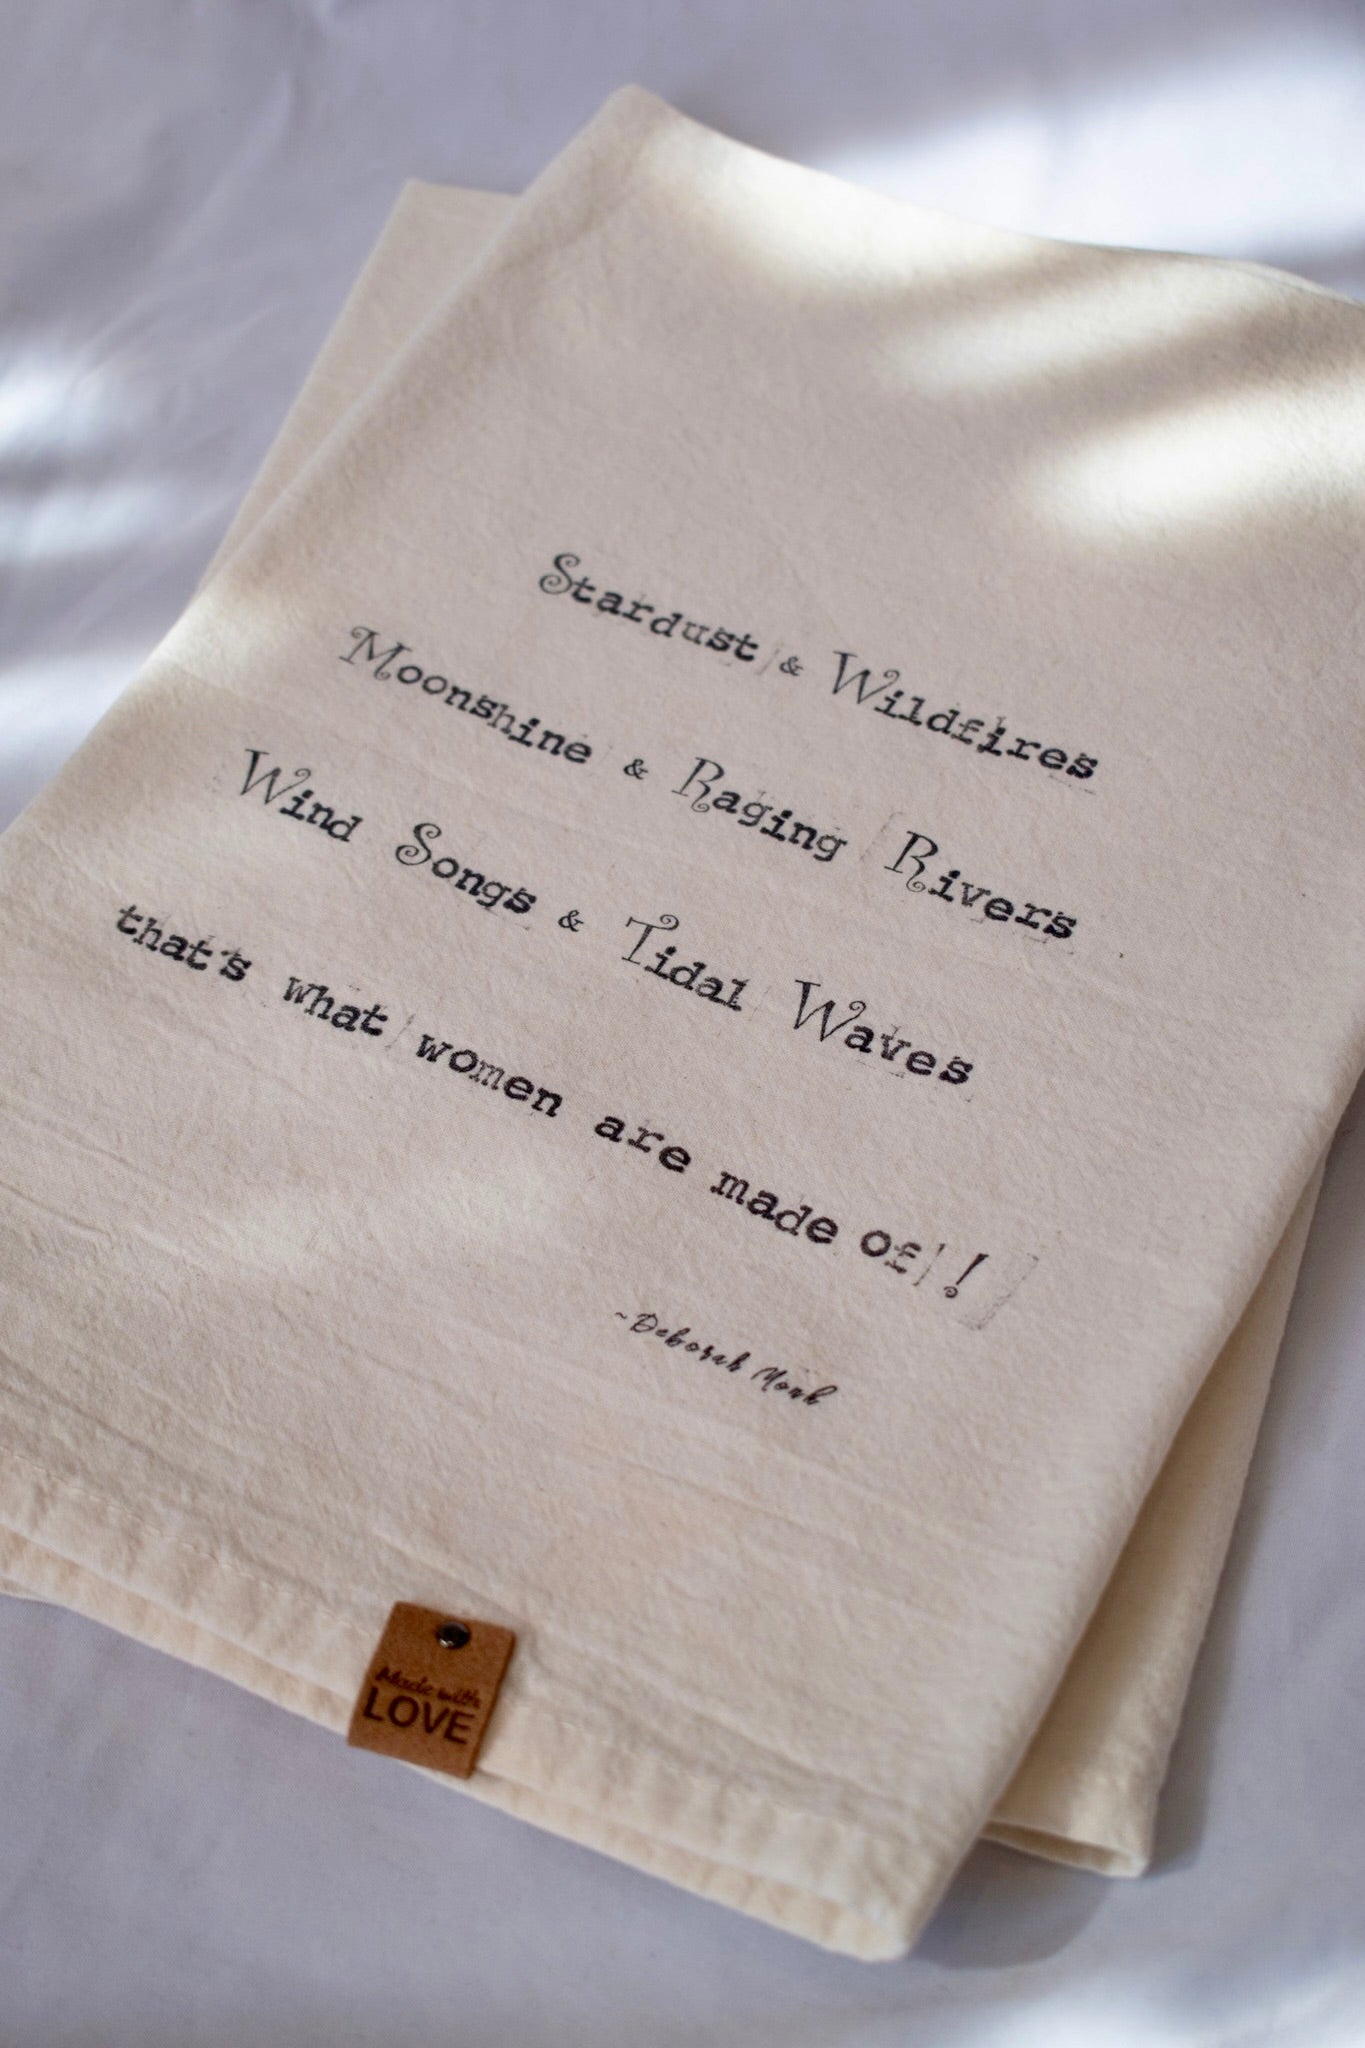 Stardust & Wildfires
Moonshine & Raging Rivers
Wind Songs & Tidal Waves
that's what women are made of!
~Deborah Monk
Made with
LOVE